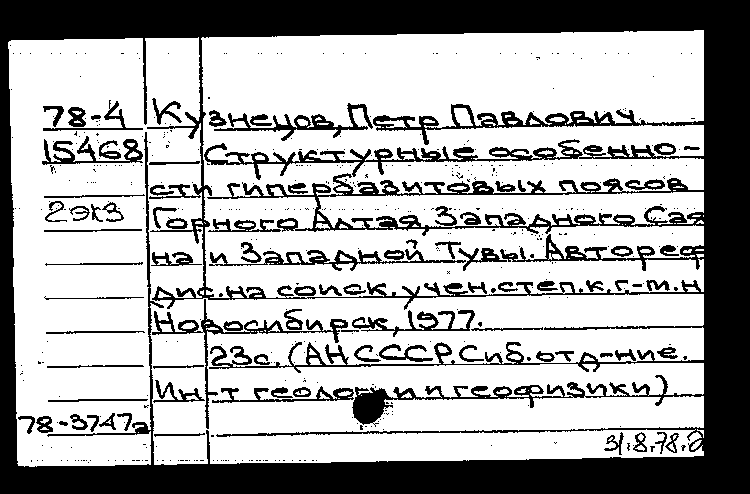 78-4 Кузнецов, Петр Павлович.
15468 Структурные особенно-
сти гипербазитовых поясов
2экз Горного Алтая, Западного Сая
на и Западной Тувы. Автореф
дис. на соиск. учен. степ. к. г.-м. н
Новосибирск, 1977.
23с. (АН СССР. Сиб. отд-ние.
Ин-т геологии и геофизики)
78-3747а
31.8.78.